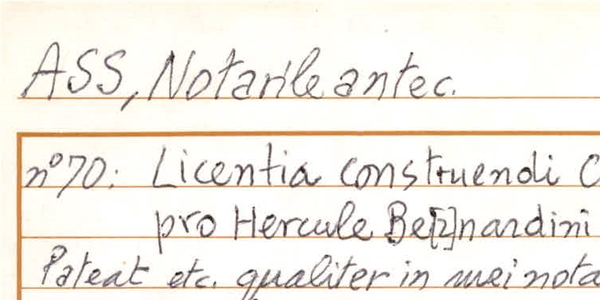 ASS, Notarile antec.
n° 70: Licentia construendi
pro Hercule Be[r]nardini
Pateat etc. qualiter in mei nota